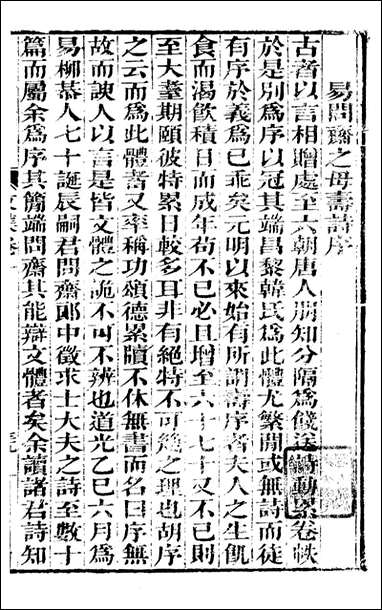 易問齋之母壽詩序
古者以言相贈處至六朝唐人朋知分隔爲餞送詩動累卷帙
於是別爲序以冠其端昌黎韓氏爲此體尤繁間或無詩而徒
有序於義爲已乖矣元明以來始有所謂壽序者夫人之生飢
食而渴飲積日而成年苟不已必且增至六十七十又不已則
至大耋期頤彼特累日較多耳非有絕特不可幾之理也胡序
之云而爲此體者又率稱功頌德累牘不休無書而名曰序無
故而諛人以言是皆文體之詭不可不辨也道光乙巳六月爲
易柳恭人七十誕辰嗣君問齋郎中徵求士大夫之詩至數十
篇而屬余爲序其簡端問齋其能辯文體者矣余讀諸君詩知